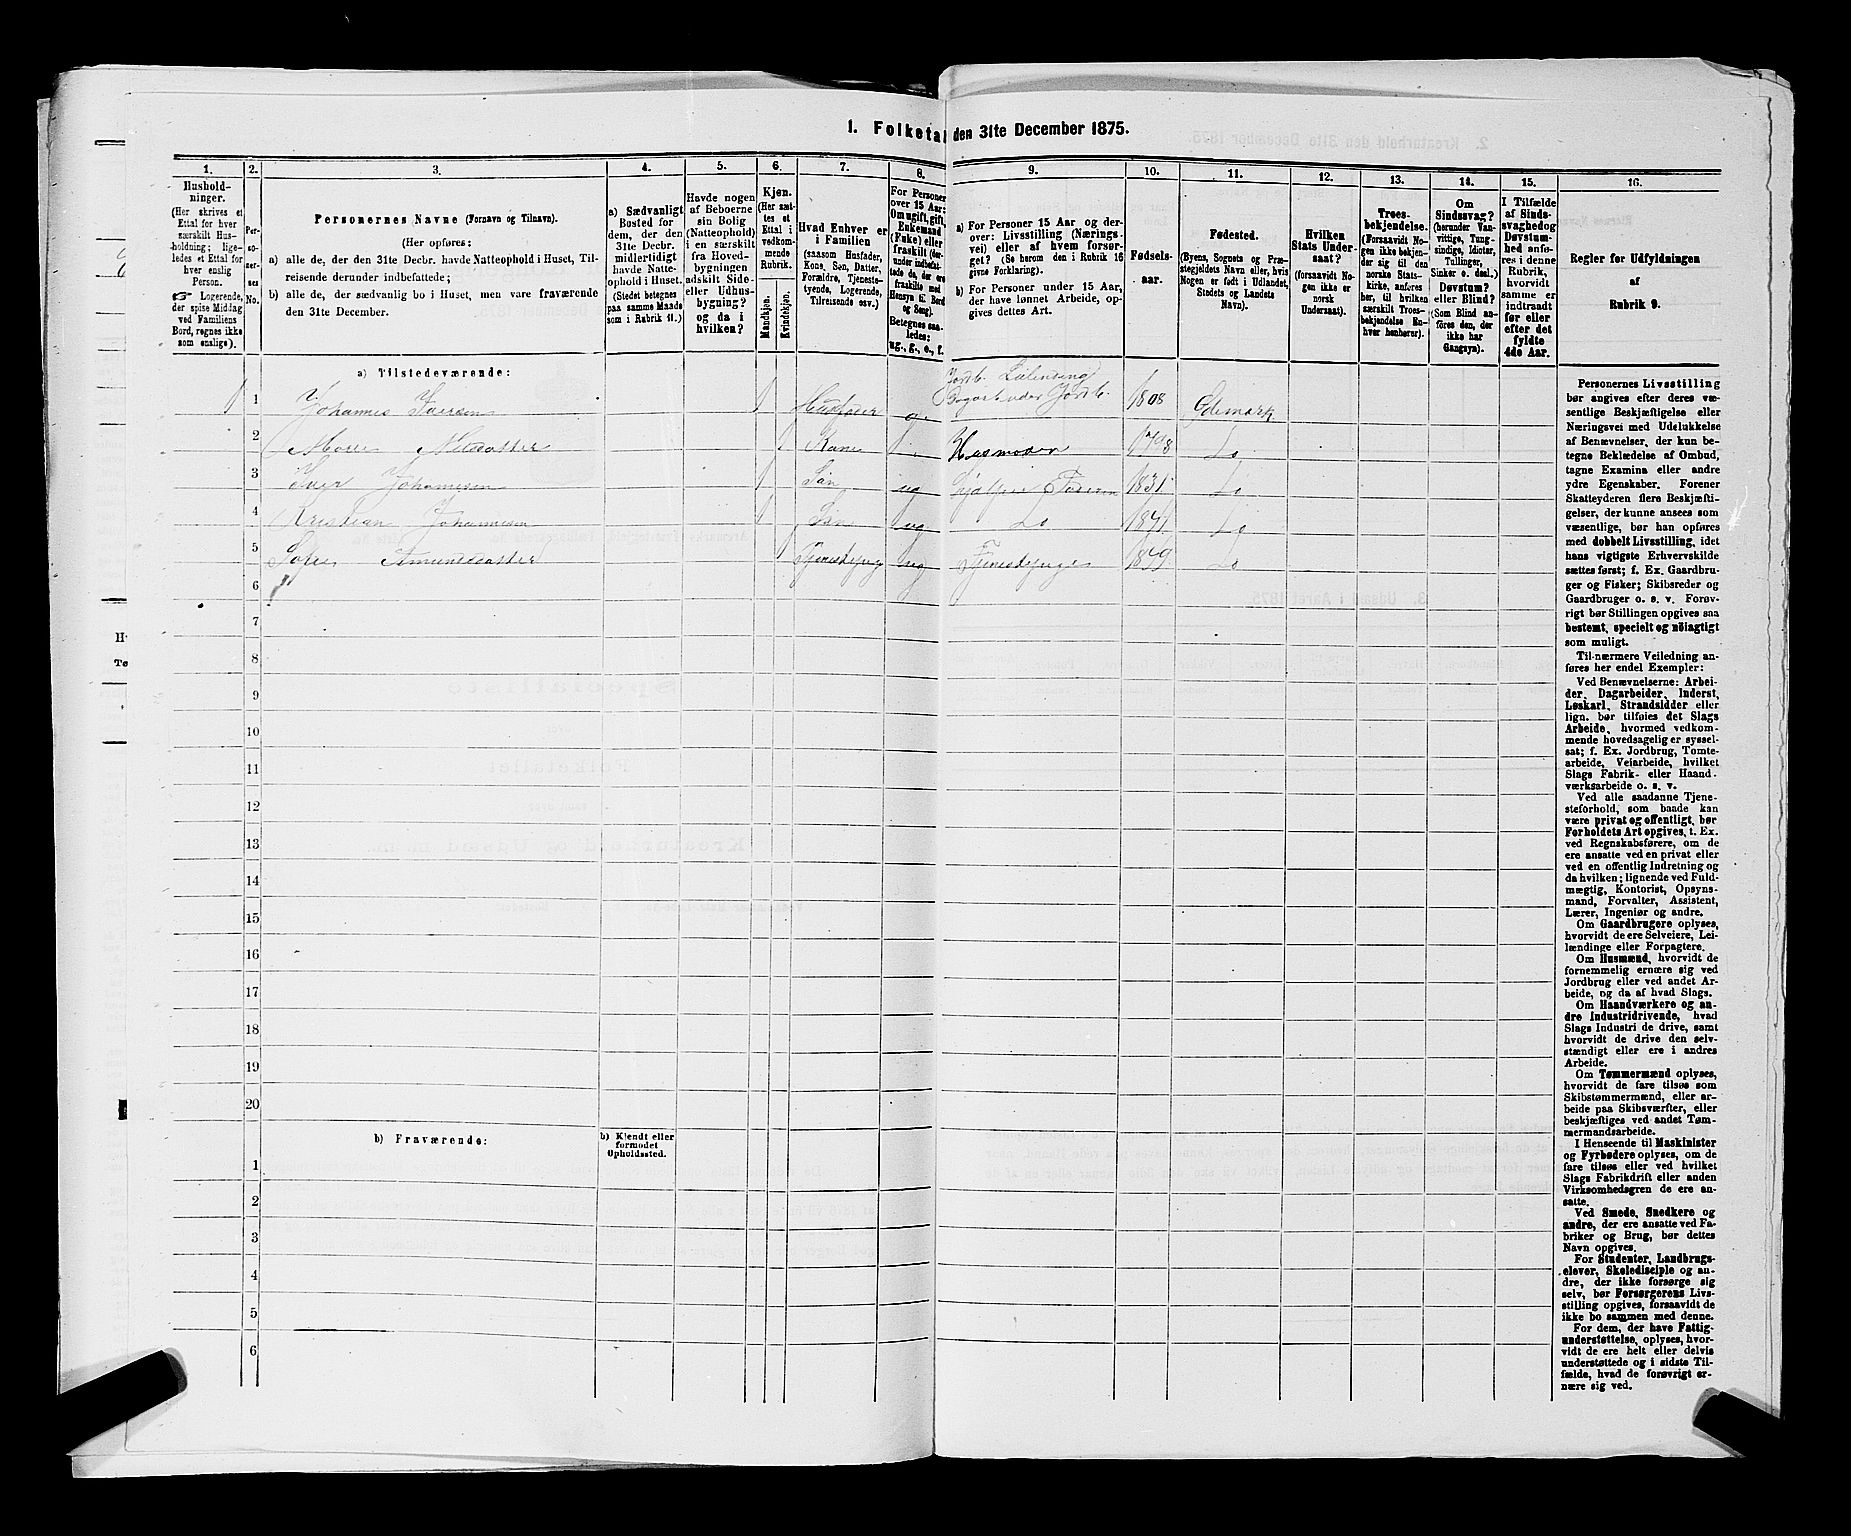 1. Folketal den 31te December 1875.
1.
Hushold-
ninger.
(Her skrives et
Ettal for hver
særskilt Hus-
holdning; lige-
ledes et Ettal for
hver enslig
Person.
☞ Logerende,
der spise Middag
ved Familiens
Bord, regnes ikke
som enslige).
2.
Per-
so-
ner-
nes
No.
3.
Personernes Navne (Fornavn og Tilnavn).
(Her opføres:
a) alle de, der den 31te Decbr. havde Natteophold i Huset, Til-
reisende derunder indbefattede;
b) alle de, der sædvanlig bo i Huset, men vare fraværende
den 31te December.
4.
a) Sædvanligt
Bosted for
dem, der den
31te Decbr.
midlertidigt
havde Natte-
ophold i Huset.
(Stedet betegnes
paa samme Maade
som i Rubrik 11.)
5.
Havde nogen
af Beboerne
sin Bolig
(Natteophold)
i en særskilt
fra Hoved-
bygningen
adskilt Side-
eller Udhus-
bygning?
og da i
hvilken?
6.
Kjøn.
(Her sæt-
tes et
Ettal i
vedkom-
mende
Rubrik.
Mandkjøn.
Kvindekjøn.
7.
Hvad Enhver er
i Familien
(saasom Husfader,
Kone, Søn, Datter,
Forældre, Tjeneste-
tyende, Logerende,
Tilreisende osv.)
8.
For Personer
over 15 Aar:
Om ugift, gift,
Enkemand
(Enke) eller
fraskilt
Betegnes saa-
ledes:
ug., g., e., f.
9.
a) For Personer 15 Aar og der-
over: Livsstilling (Nærings-
vei) eller af hvem forsør-
get? (Se herom den i Rubrik 16
givne Forklaring).
b) For Personer under 15 Aar,
der have lønnet Arbeide, op-
gives dettes Art.
10.
Fødsels-
aar.
11.
Fødested.
(Byens, Sognets og Præ-
stegjeldets Navn eller, hvis
Nogen er født i Udlandet,
Stedets og Landets
Navn).
12.
Hvilken
Stats Under-
saat?
(forsaavidt No-
gen ikke er
norsk
Undersaat).
13.
Troes-
bekjendelse.
(Forsaavidt No-
gen ikke bekjen-
der sig til den
norske Stats-
kirke, anføres
her, til hvilken
særskilt Troes-
bekjendelse En-
hver henhører).
14.
Om
Sindssvag?
(herunder Van-
vittige, Tung-
sindige, Idioter,
Tullinger,
Sinker o. desl.)
Døvstum?
eller Blind?
(Som Blind an-
føres den, der
ikke har
Gangsyn).
15.
I Tilfælde
af Sinds-
svaghed og
Døvstum-
hed anfø-
res i denne
Rubrik,
hvorvidt
samme er
indtraadt
før eller
efter det
fyldte
4de Aar.
16.
Regler for Udfyldningen
af
Rubrik 9.
a) Tilstedeværende:
1 1 Johannes Iversen 1 Husfader g. Gaardbruger Jordb. 1808 Ødemark
2 Nilsdatter 1 Kone 1798 Do
3 Iver Johannesen 1 Søn ug Hjelper Faderen 1831 Do
4 Kristian Johannesen 1 Søn ug Do 1841 Do
5 Sofie Amundsdatter 1 Tjenestepige ug Tjenestepige 1849 Do
6
7
8
9
10
11
12
13
14
15
16
17
18
19
20
b) Fraværende:
b) Kjendt eller
formodet
Opholdssted.
1
2
3
4
5
6
Personernes Livsstilling
bør angives efter deres væ-
sentlige Beskjæftigelse eller
Næringsvei med Udelukkelse
af Benævnelser, der kun be-
tegne Beklædelse af Ombud,
tagne Examina eller andre
ydre Egenskaber. Forener
Skatteyderen flere Beskjæfti-
gelser, der kunne ansees som
væsentlige, bør han opføres
med dobbelt Livsstilling, idet
hans vigtigste Erhvervskilde
sættes først; f. Ex. Gaardbru-
ger og Fisker; Skibsreder og
Gaardbruger o. s. v. Forøv-
rigt bør Stillingen opgives saa
bestemt, specielt og nøiagtigt
som muligt.
Til nærmere Veiledning an-
føres her endel Exempler:
Ved Benævnelserne: Arbei-
der, Dagarbeider, Inderst,
Løskarl, Strandsidder eller
lign. bør tilføies det Slags
Arbeide, hvormed vedkom-
mende hovedsagelig er syssel-
sat; f. Ex. Jordbrug, Tomte-
arbeide, Veiarbeide, hvilket
Slags Fabrik- eller Haand-
værksarbeide o. s. v.
Ved alle saadanne Tjene-
steforhold, som baade kan
være privat og offentligt, bør
Forholdets Art opgives, t. Ex.
ved Regnskabsførere, om de
ere ansatte ved en privat eller
ved en offentlig Indretning og
da hvilken; lignende ved Fuld-
mægtig, Kontorist, Opsyns-
mand, Forvalter, Assistent,
Lærer, Ingeniør og andre.
Om Gaardbrugere oplyses,
hvorvidt de ere Selveiere, Lei-
lændinge eller Forpagtere.
Om Husmænd, hvorvidt de
fornemmelig ernære sig ved
Jordbrug eller ved andet Ar-
beide, og da af hvad Slags.
Om Haandværkere og an-
dre Industridrivende, hvad
Slags Industri de drive, samt
hvorvidt de drive den selv-
stændigt eller ere i andres
Arbeide.
Om Tømmermænd oplyses,
hvorvidt de fare tilsøs som
Skibstømmermænd, eller ar-
beide paa Skibsværfter, eller
beskjæftiges ved andet Tøm-
mermandsarbeide.
I Henseende til Maskinister
og Fyrbødere oplyses, om de
fare tilsøs eller ved hvilket
Slags Fabrikdrift eller anden
Virksomhedsgren de ere an-
satte.
Ved Smede, Snedkere og
andre, der ere ansatte ved Fa-
briker og Brug, bør dettes
Navn opgives.
For Studenter, Landbrugs-
elever, Skoledisciple og an-
dre, der ikke forsørge sig
selv, bør Forsørgerens Livs-
stilling opgives, forsaavidt de
ikke bo sammen med denne.
For dem, der have Fattig-
understøttelse, oplyses, hvor-
vidt de ere helt eller delvis
understøttede og i sidste Til-
fælde, hvad de forøvrigt er-
nære sig ved.